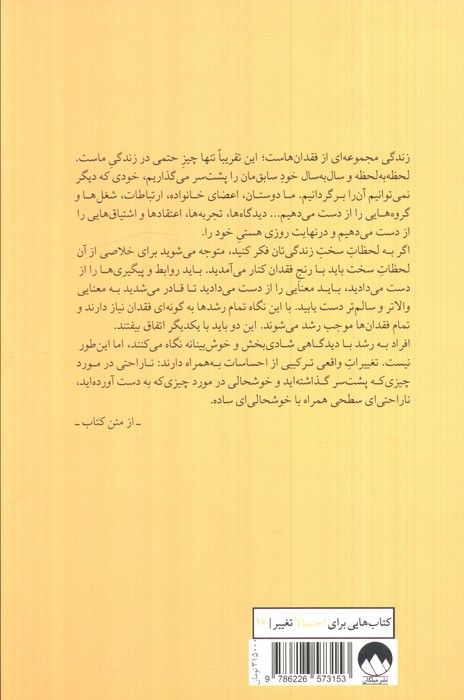 زندگی مجموعه‌ای از فقدان‌هاست؛ این تقریباً تنها چیزِ حتمی در زندگیِ ماست.
لحظه‌به‌لحظه و سال‌به‌سال خودِ سابق‌مان را پشت‌سر می‌گذاریم، خودی که دیگر
نمی‌توانیم آن‌را برگردانیم. ما دوستان، اعضای خانواده، ارتباطات، شغل‌ها و
گروه‌هایی را از دست می‌دهیم... دیدگاه‌ها، تجربه‌ها، اعتقادها و اشتیاق‌هایی را
از دست می‌دهیم و درنهایت روزی هستیِ خود را.
اگر به لحظاتِ سختِ زندگی‌تان فکر کنید، متوجه می‌شوید برای خلاصی از آن
لحظاتِ سخت باید با رنجِ فقدان کنار می‌آمدید. باید روابط و پیگیری‌ها را از
دست می‌دادید، باید معنایی را از دست می‌دادید تا قادر می‌شدید به معنایی
والاتر و سالم‌تر دست یابید. با این نگاه تمام رشدها به گونه‌ای فقدان نیاز دارند و
تمام فقدان‌ها موجب رشد می‌شوند. این دو باید با یکدیگر اتفاق بیفتند.
افراد به رشد با دیدگاهی شادی‌بخش و خوش‌بینانه نگاه می‌کنند، اما این‌طور
نیست. تغییراتِ واقعی ترکیبی از احساسات به‌همراه دارند: ناراحتی در مورد
چیزی‌که پشت‌سر گذاشته‌اید و خوشحالی در مورد چیزی‌که به دست آورده‌اید،
ناراحتی‌ای سطحی همراه با خوشحالی‌ای ساده.
ـ از متن کتاب ـ
کتاب‌هایی برای احتمالاً تغییر | ۱۶
۳۱۵۰۰۰ تومان
9 786226 573153
نشر میلکان